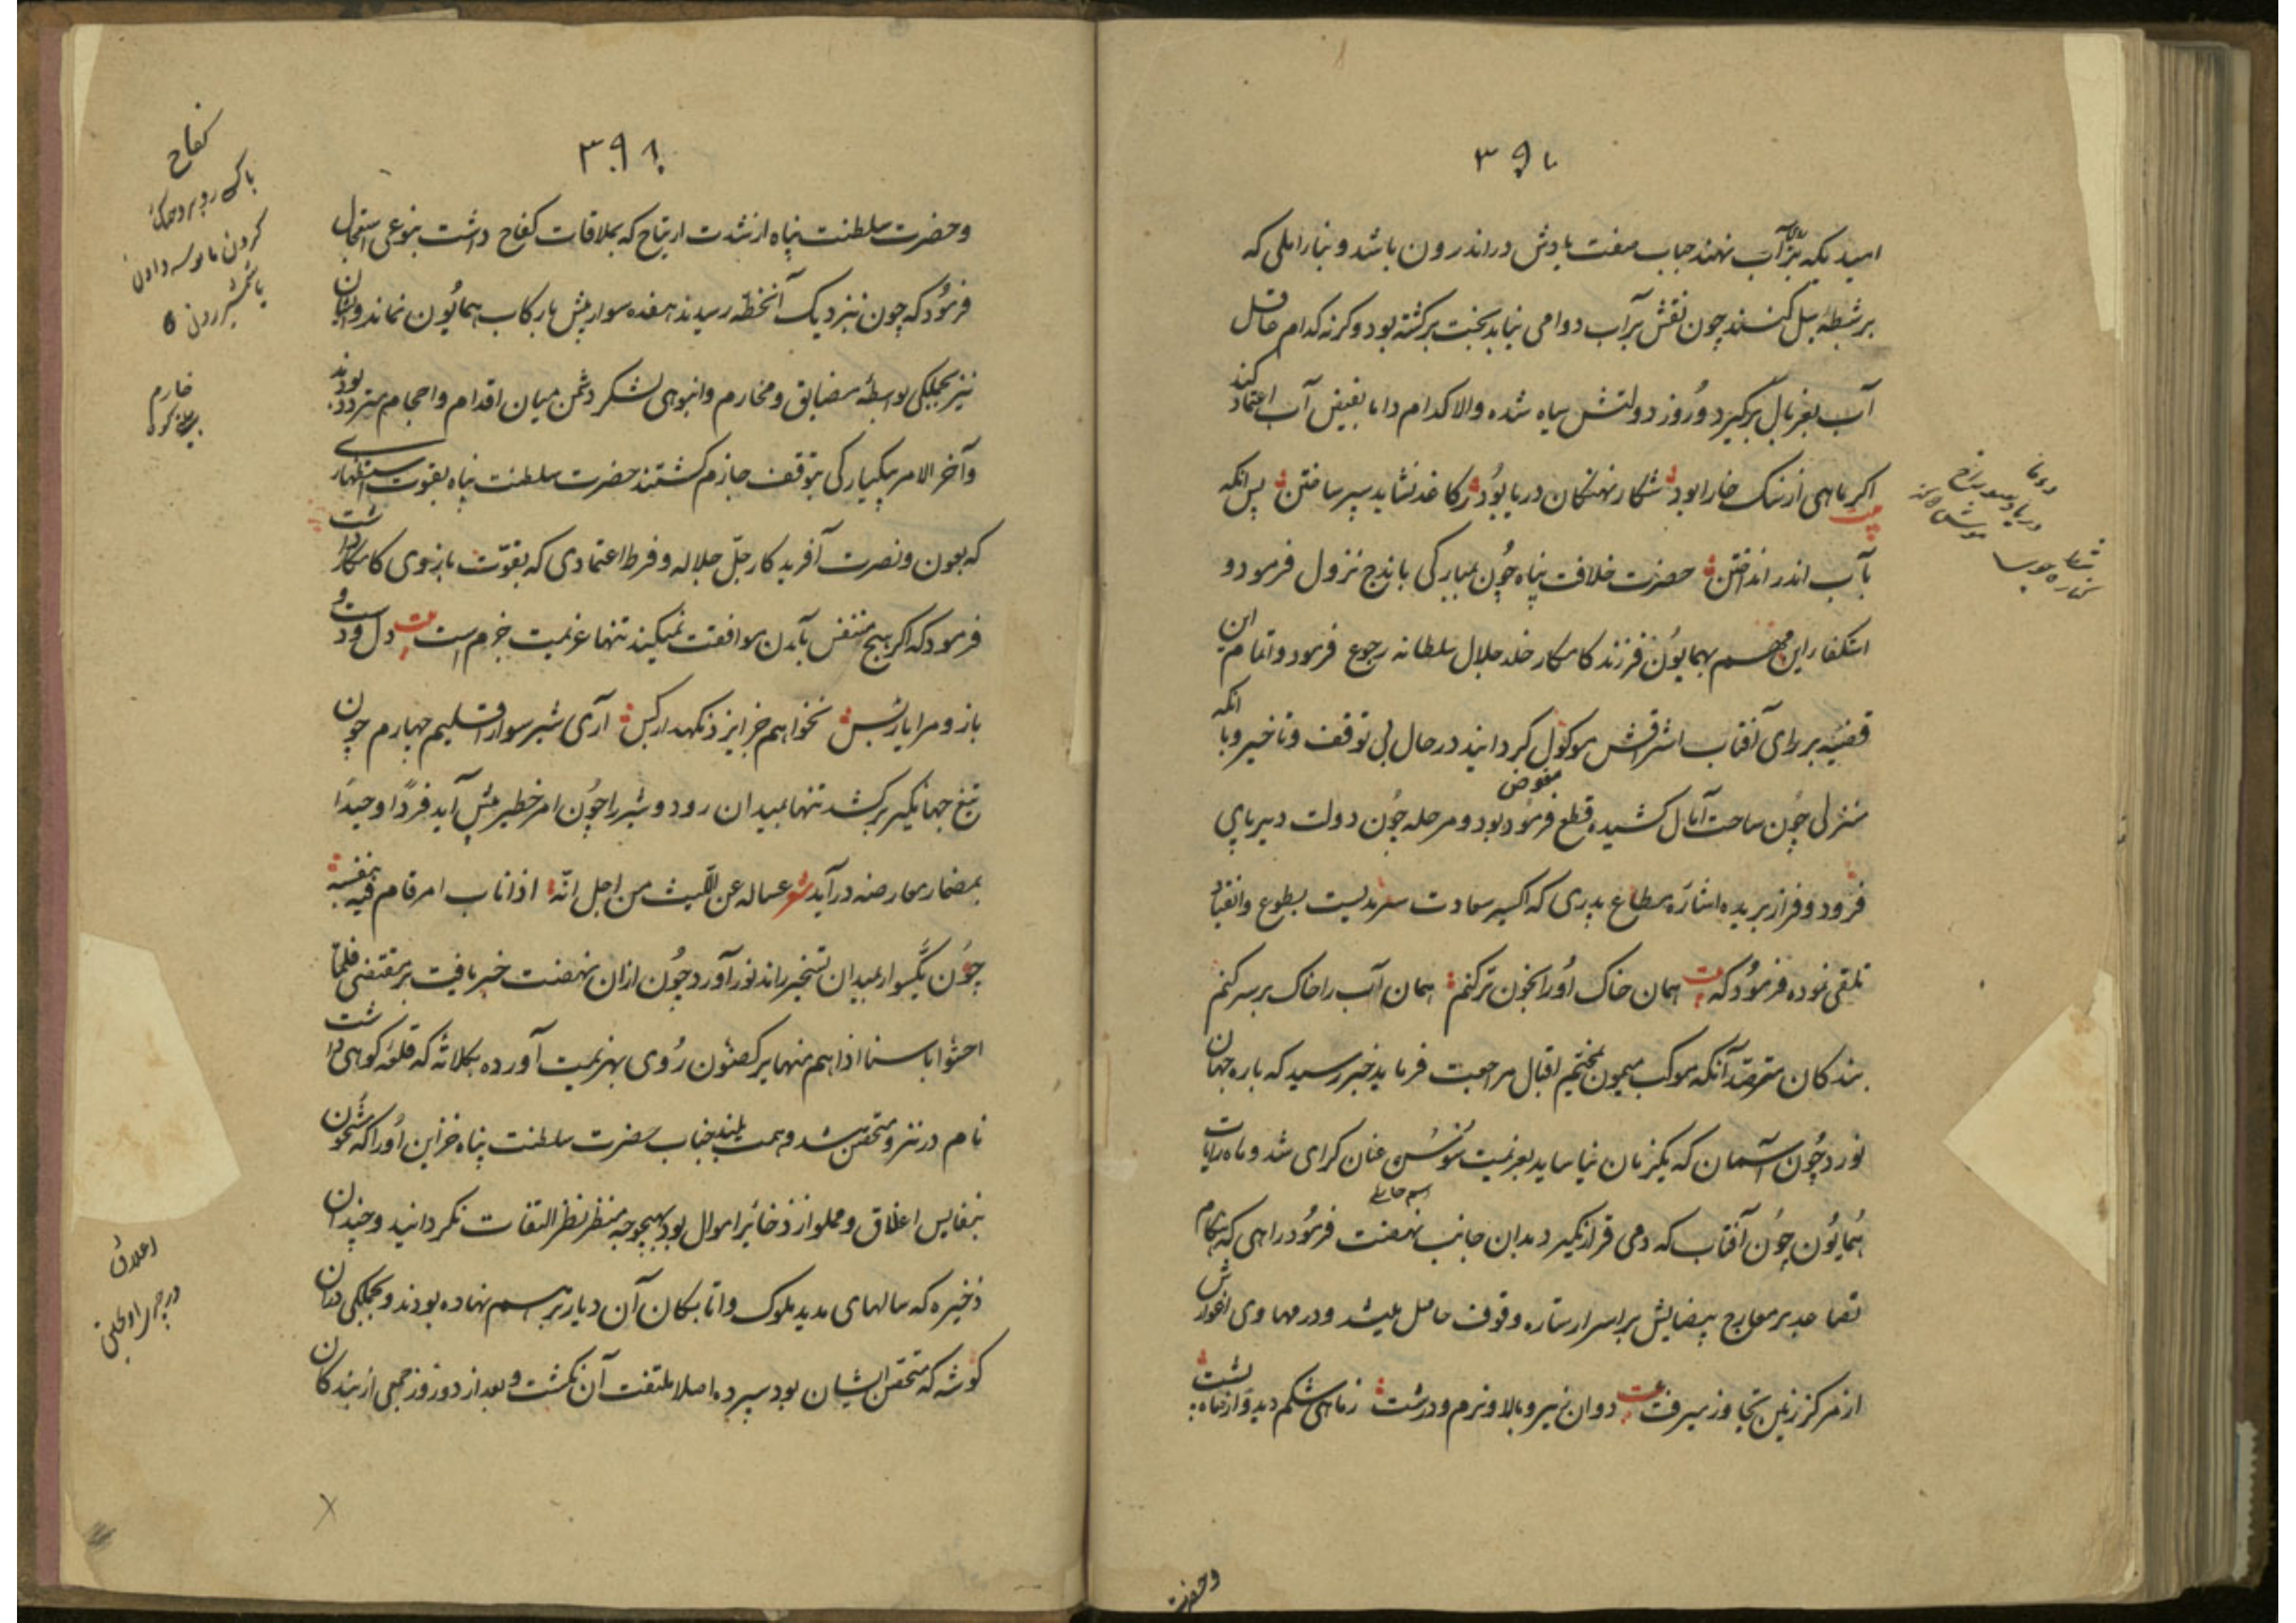 ۳۹۰
امید تکیه بر آب نهند حباب صفت بادش در اندرون باشد و بنا را ملی که
بر شط پل کنند چون نقش بر آب دوامی نیابد بخت برکشته بود وکرنه کدام عاقل
آب بغربال برکیرد و روز دولتش سیاه شده والا کدام دانا بفیض آب اعتماد کند
اکر ماهی از سنک خارا بود شکار نهنکان دریا بود ز کاغذ نشاید سپر ساختن پس انکه
بآب اندر انداختن حضرت خلافت پناه چون بمبارکی باندج نزول فرمود و
استکفار این مهم بهمایون فرزند کامکار خلد جلال سلطانه رجوع فرمود و اتمام این
قضیه بر رای آفتاب اشراقش موکول کردانید در حال بی توقف و تاخیر و با انکه
مفوض
منزلی چون ساحت آمال کشیده قطع فرموده بود و مرحله چون دولت دیرپای
فرود و فراز بریده اشاره مطاع پدری که اکسیر سعادت سرمدیست بطوع و انقیاد
تلقی نموده فرمود که بیت همان خاک اورا بخون تر کنم همان آب را خاک بر سر کنم
بندکان مترصد آنکه موکب میمون مختم اقبال مراجعت فرماید خبر رسید که باره جهان
نورد چون آسمان که یکزمان نیاساید بعزیمت شوشتر عنان کرای شد و ماه رایات
همایون چون آفتاب که دمی قرار نکیرد بدان جانب نهضت فرمود راهی که هنکام
تصاعد بر معارج پیضایش بر اسرار ستاره وقوف حاصل میشد و در مهاوی اغوارش
از مرکز زمین تجاوز میرفت بیت دوان زیر و بالا و نرم و درشت ز ماهی شکم دید و از ماه پشت
وحضرت
۳۹۱
وحضرت سلطنت پناه از شدت ارتیاح که بملاقات کفاح داشت بنوعی استعجال
فرمود که چون نزدیک آنخطه رسیدند هفده سوار بیش با رکاب همایون نماند و ایشان
نیز بجملکی بواسطه مضایق و مخارم و انبوهی لشکر دشمن میان اقدام و احجام متردد بودند
وآخر الامر بیکبارکی بتوقف جازم کشتند حضرت سلطنت پناه بقوت استظهاری
که بعون و نصرت آفریدکار جل جلاله و فرط اعتمادی که بقوت بازوی کامکار داشت
فرمود که اکر هیچ متنفس بآمدن موافقت نمیکند تنها عزیمت جزم است بیت دل و دست و
بازو مرا یار بس نخواهم جز ایزد نکهدار کس آری شیر سوار اقلیم چهارم چون
تیغ جهانکیر برکشد تنها بمیدان رود و شیر را چون امر خطیر پیش آید فردا وحیدا
بمضمار معارضه درآید شعر عساله عن اللیث من اجل انه اذا ناب امر قام فیه بنفسه
چون یکسوار بمیدان تسخیر راند نورآورد چون ازان نهضت خبر یافت بر مقتضی فلما
احسوا باسنا اذا هم منها یرکضون روی بهزیمت آورده بکلاته که قلعه کوهی داشت
نام در نزو متحصن شد و همت بلند جناب حضرت سلطنت پناه خزاین اورا که مشحون
بنفایس اعلاق و مملو از ذخائر اموال بود بهیچوجه منظر نظر التفات نکردانید و چندان
ذخیره که سالهای مدید ملوک و اتابکان آن دیار بر هم نهاده بودند و بجملکی دران
کوشه که متحصن ایشان بود سپرده اصلا ملتفت آن نکشت و بعد از دو روز جمعی از بندکان
کفاح
خارم
اعلاق